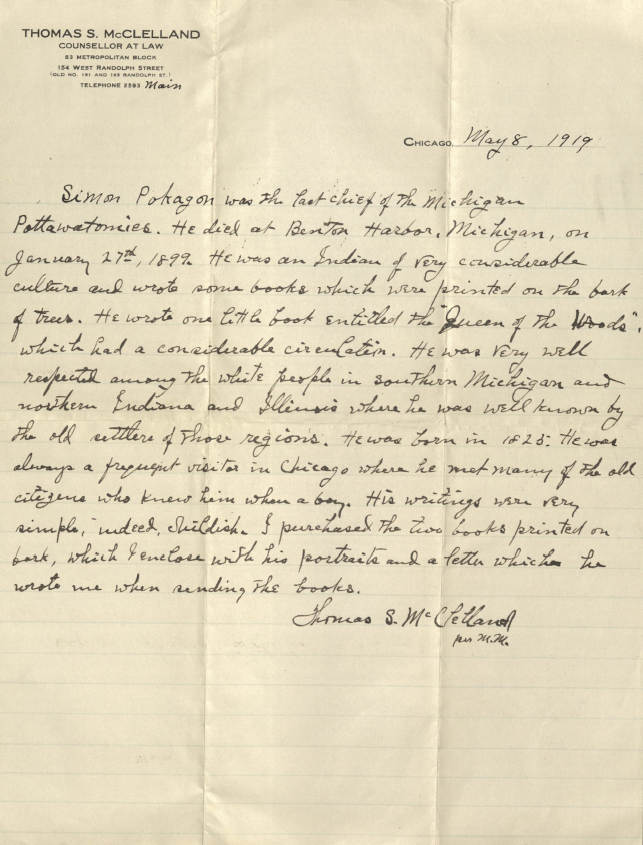 THOMAS S. McCLELLAND
COUNSELLOR AT LAW
83 METROPOLITAN BLOCK
154 WEST RANDOLPH STREET
(OLD NO. 161 AND 163 RANDOLPH ST.)
TELEPHONE 2593 Main
CHICAGO, May 8, 1919
Simon Pokagon was the last chief of the Michigan
Pottawatomies. He died at Benton Harbor, Michigan, on
January 27th, 1899. He was an Indian of very considerable
culture and wrote some books which were printed on the bark
of trees. He wrote one little book entitled the "Queen of the Woods",
which had a considerable circulation. He was very well
respected among the white people in southern Michigan and
northern Indiana and Illinois where he was well known by
the old settlers of those regions. He was born in 1825. He was
always a frequent visitor in Chicago where he met many of the old
citizens who knew him when a boy. His writings were very
simple, indeed, childish. I purchased the two books printed on
bark, which I enclose with his portraits and a letter which he
wrote me when sending the books.
Thomas S. McClelland
per M.M.